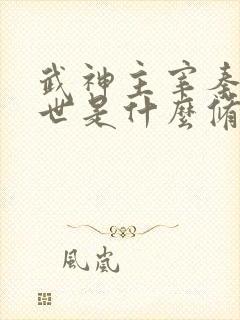 武神主宰秦
世是什麼脩
風嵐